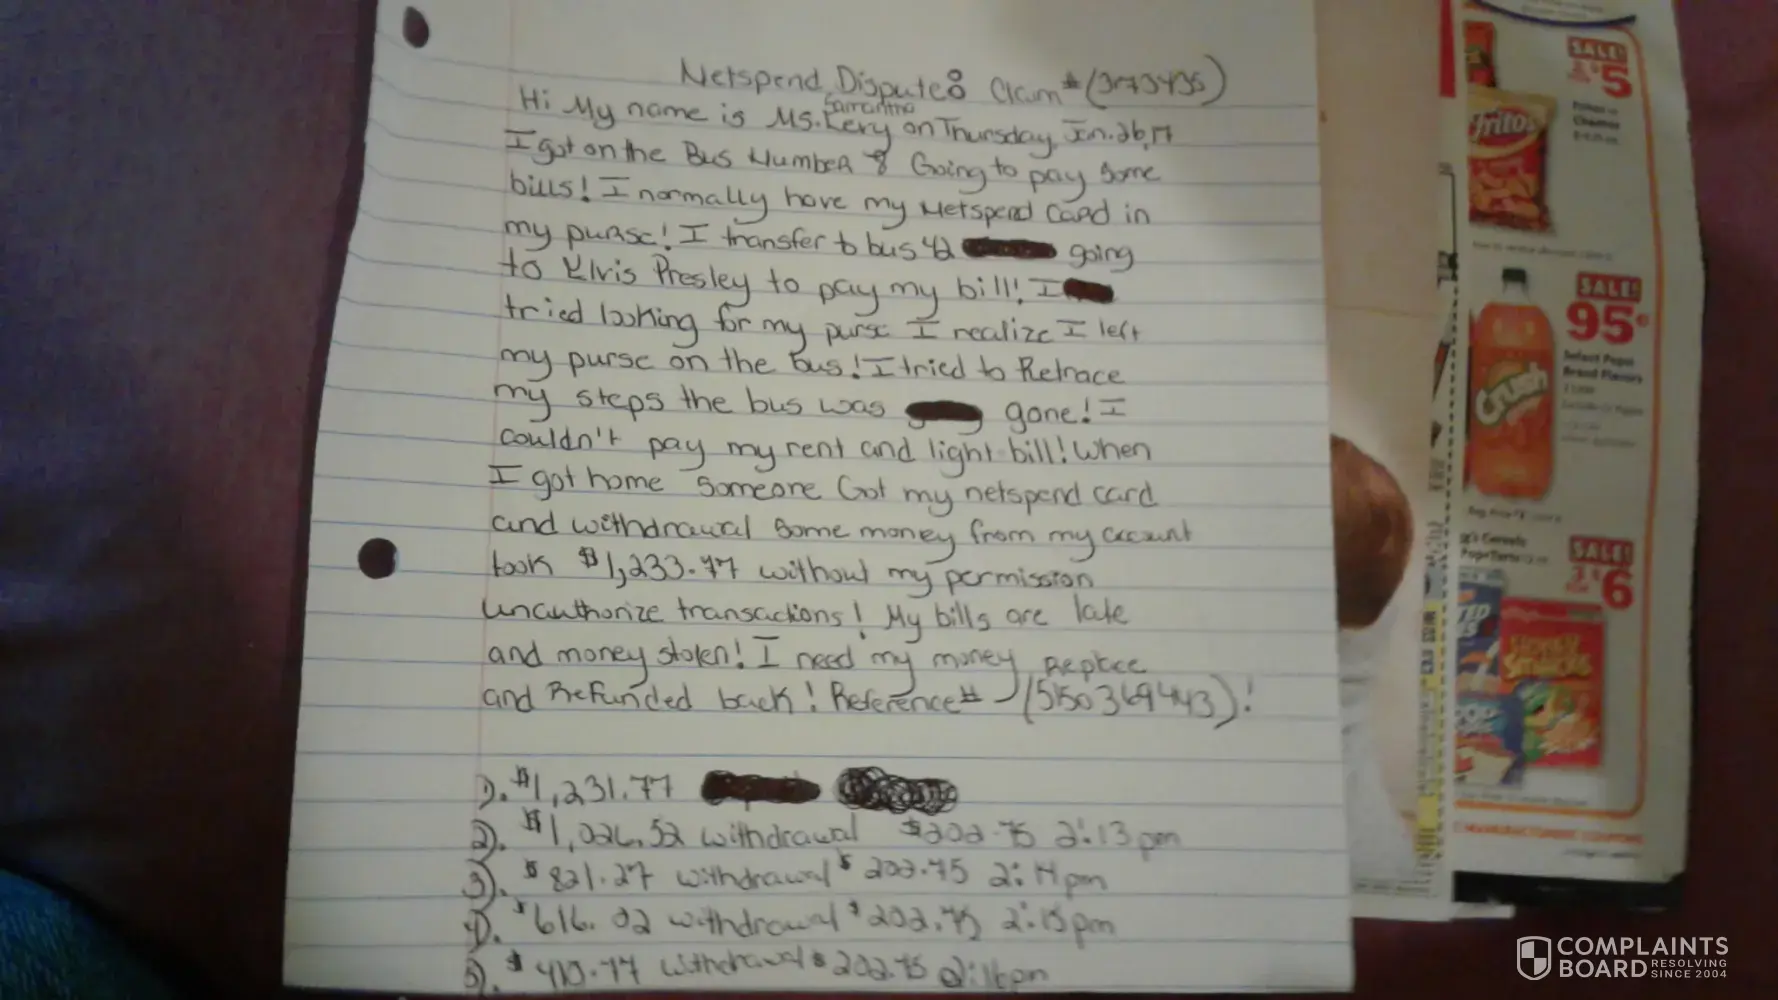 Netspend Dispute: Claim # (3r73435)
Hi My name is Ms. Samantha Kery on Thursday, Jn. 26, 17
I got on the Bus Number 8 Going to pay some
bills! I normally have my Netspend Card in
my purse! I transfer to bus 42 going
to Elvis Presley to pay my bill! I
tried looking for my purse I realize I left
my purse on the bus! I tried to Retrace
my steps the bus was gone! I
couldn't pay my rent and light bill! When
I got home someone Got my netspend card
and withdrawal some money from my account
took $1,233.77 without my permission
unauthorize transactions! My bills are late
and money stolen! I need my money Replace
and Refunded back! Reference# (5150369443)!
1). $1,231.77
2). $1,026.52 withdrawal $202.75 2:13pm
3). $821.27 withdrawal $202.75 2:14pm
4). $616.02 withdrawal $202.75 2:15pm
5). $410.77 withdrawal $202.75 2:16pm
SALE!
$5
Fritos
SALE!
95¢
Select Pepsi
Brand Flavors
Crush
SALE!
$6
HONEY
SMACKS
COMPLAINTS
BOARD RESOLVING
SINCE 2004